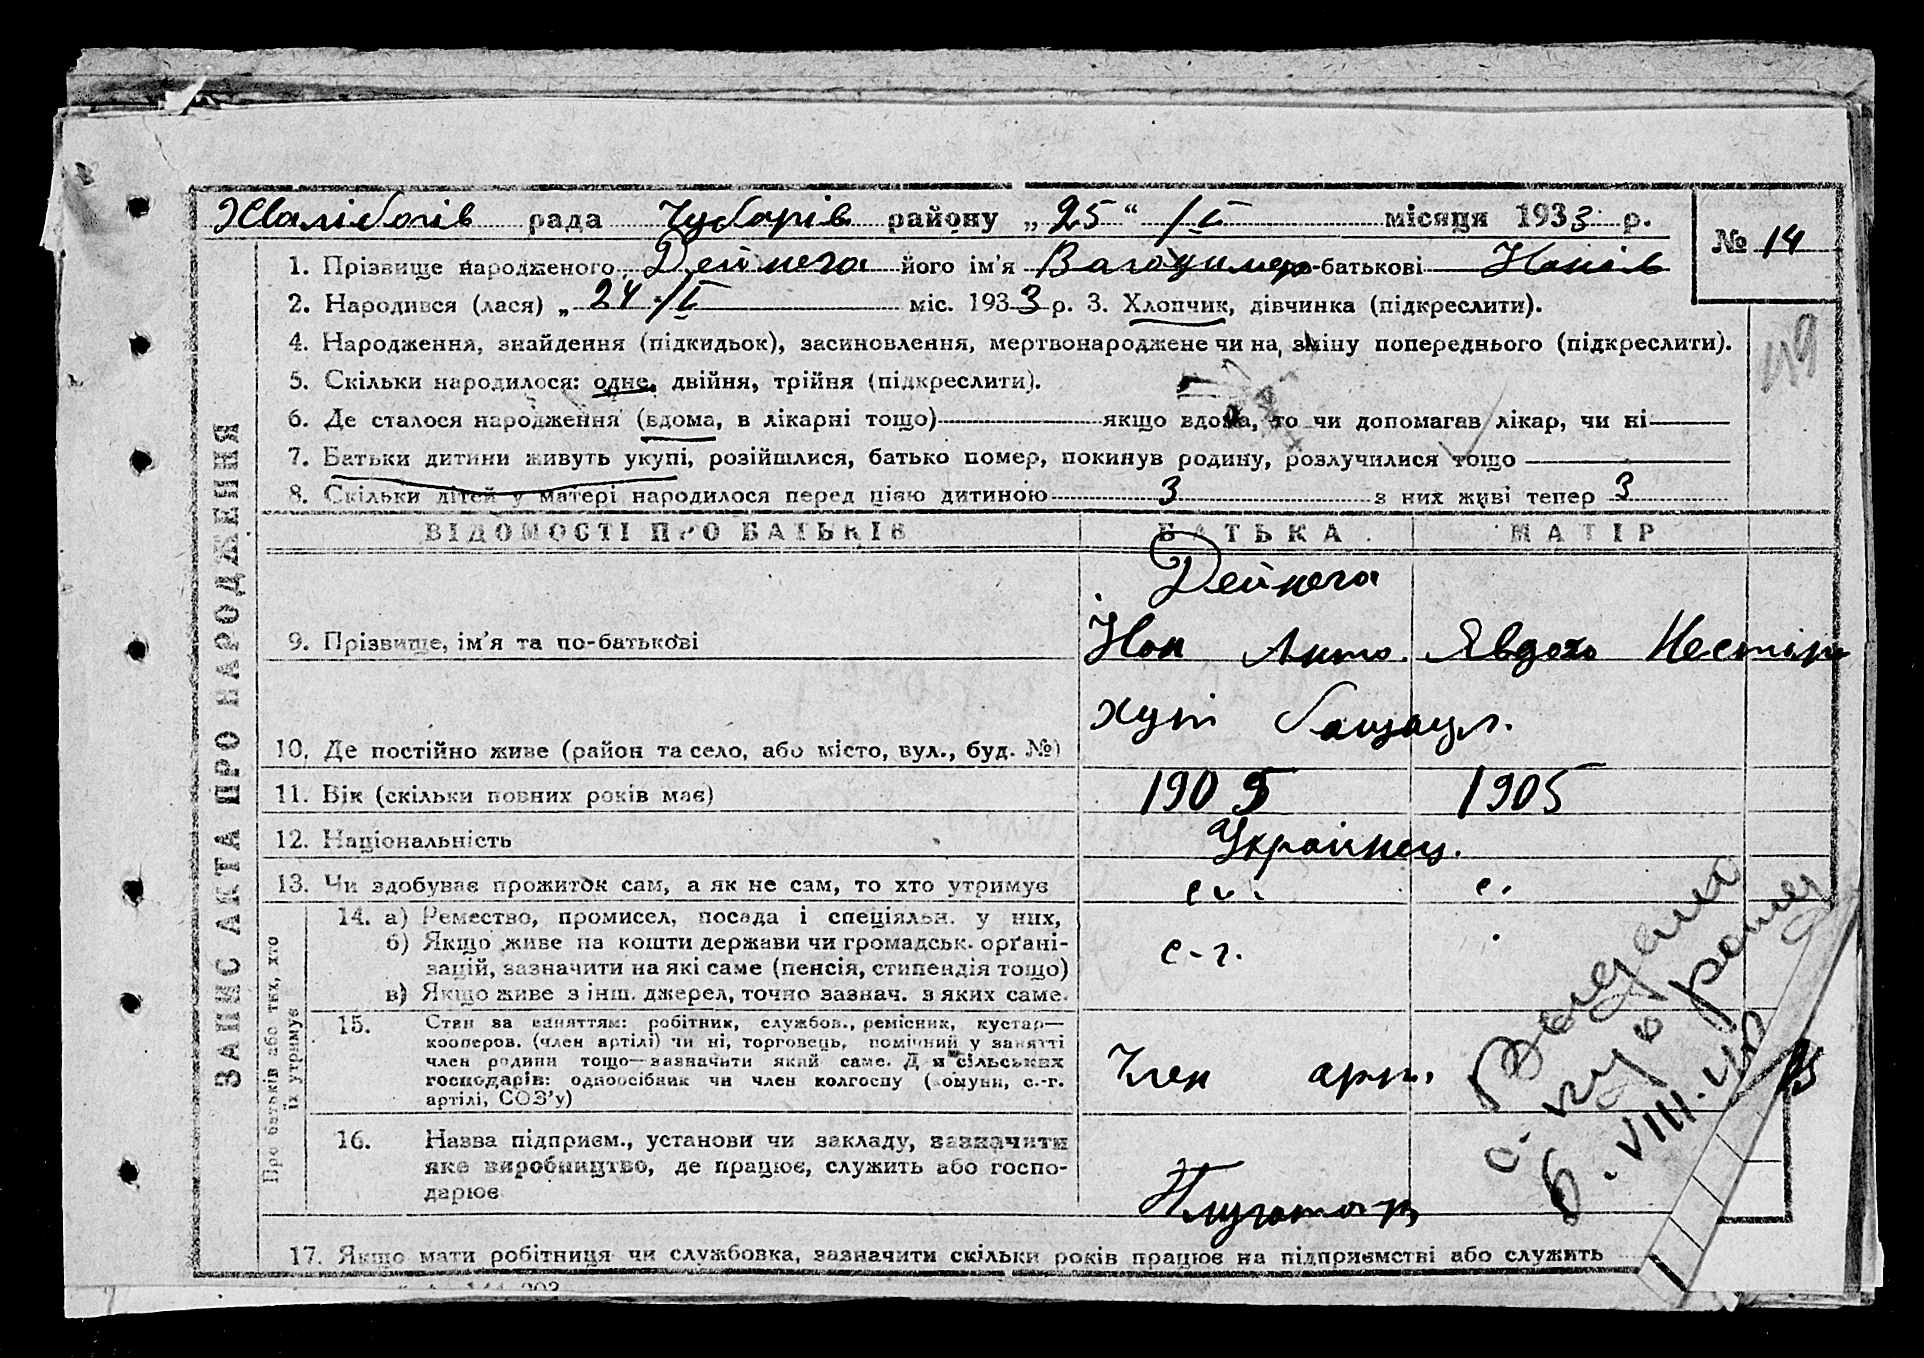 Хвалібогів рада Чубарів району „ 25 “ / І місяця 1933 р.
№ 14
1. Прізвище народженого Дейнега його ім'я Володимир по-батькові Нонів
2. Народився (лася) „ 24 / І міс. 1933 р. 3. Хлопчик, дівчинка (підкреслити).
4. Народження, знайдення (підкидьок), засиновлення, мертвонароджене чи на зміну попереднього (підкреслити).
49
5. Скільки народилося: одне, двійня, трійня (підкреслити).
6. Де сталося народження (вдома, в лікарні тощо) якщо вдома, то чи допомагав лікар, чи ні
7. Батьки дитини живуть укупі, розійшлися, батько помер, покинув родину, розлучилися тощо
8. Скільки дітей у матері народилося перед цією дитиною 3 з них живі тепер 3
ЗАПИС АКТА ПРО НАРОДЖЕННЯ
ВІДОМОСТІ ПРО БАТЬКІВ БАТЬКА МАТІР
Дейнега
9. Прізвище, ім'я та по-батькові Нон Анто. Явдоха Нестір
хут
10. Де постійно живе (район та село, або місто, вул., буд. №)
11. Вік (скільки повних років має) 1905 1905
12. Національність Українец.
13. Чи здобуває прожиток сам, а як не сам, то хто утримує с. с.
Про батьків або тих, хто їх утримує
14. а) Ремество, промисел, посада і спеціяльн. у них,
б) Якщо живе на кошти держави чи громадськ. орґані-
зацій, зазначити на які саме (пенсія, стипендія тощо) с-г.
в) Якщо живе з інш. джерел, точно зазнач. з яких саме.
15. Стан за заняттям: робітник, службов., ремісник, кустар—
кооперов. (член артілі) чи ні, торговець, помічний у занятті
член родини тощо—зазначити який саме. Для сільських
господарів: одноосібник чи член колгоспу (комуни, с.-г.
артілі, СОЗ'у)
Член арт.
16. Назва підприєм., установи чи закладу, зазначити
яке виробництво, де працює, служить або госпо-
дарює
Плугатар
6. VIII.
17. Якщо мати робітниця чи службовка, зазначити скільки років працює на підприємстві або служить